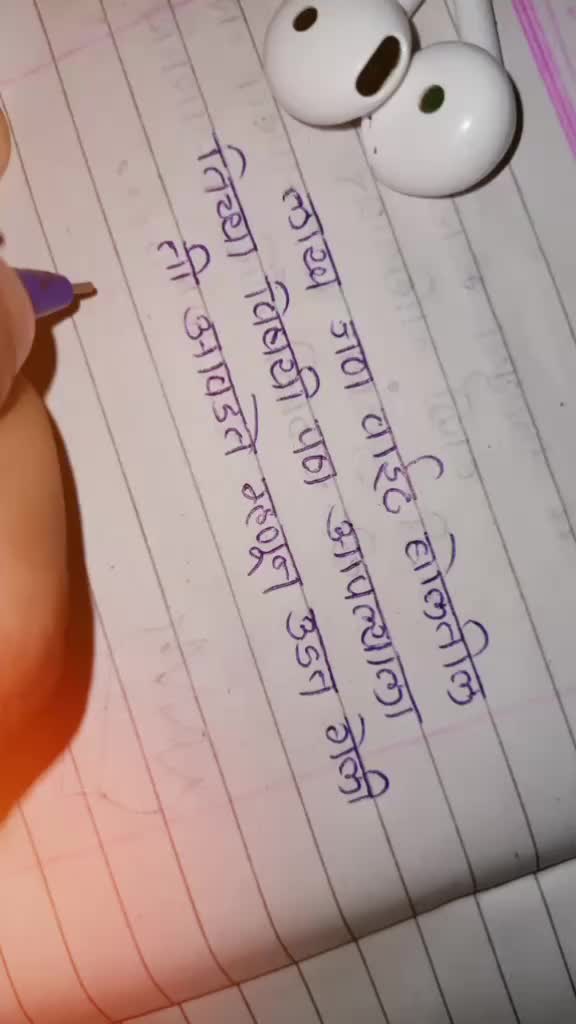 लाख जण वाईट बोलतील
तिच्या विषयी पण आपल्याला
ती आवडते म्हणून उडत गेली